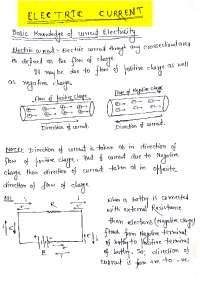 ELECTRIC CURRENT
Basic Knowledge of current Electricity
Electric current - Electric current through any cross-sectional area
is defined as the flow of charge.
It may be due to flow of positive charge as well
as negative charge.
Flow of Positive Charge
Flow of Negative Charge
Direction of current.
Direction of current.
Note:- Direction of current is taken as in direction of
flow of positive charge. But if current due to Negative
charge then direction of current taken as in opposite
direction of flow of charge.
When a battery is connected
R
with external Resistance
then electrons (Negative charge)
flows from Negative terminal
of battery to Positive terminal
of battery. So, direction of
current is from +ve to -ve.